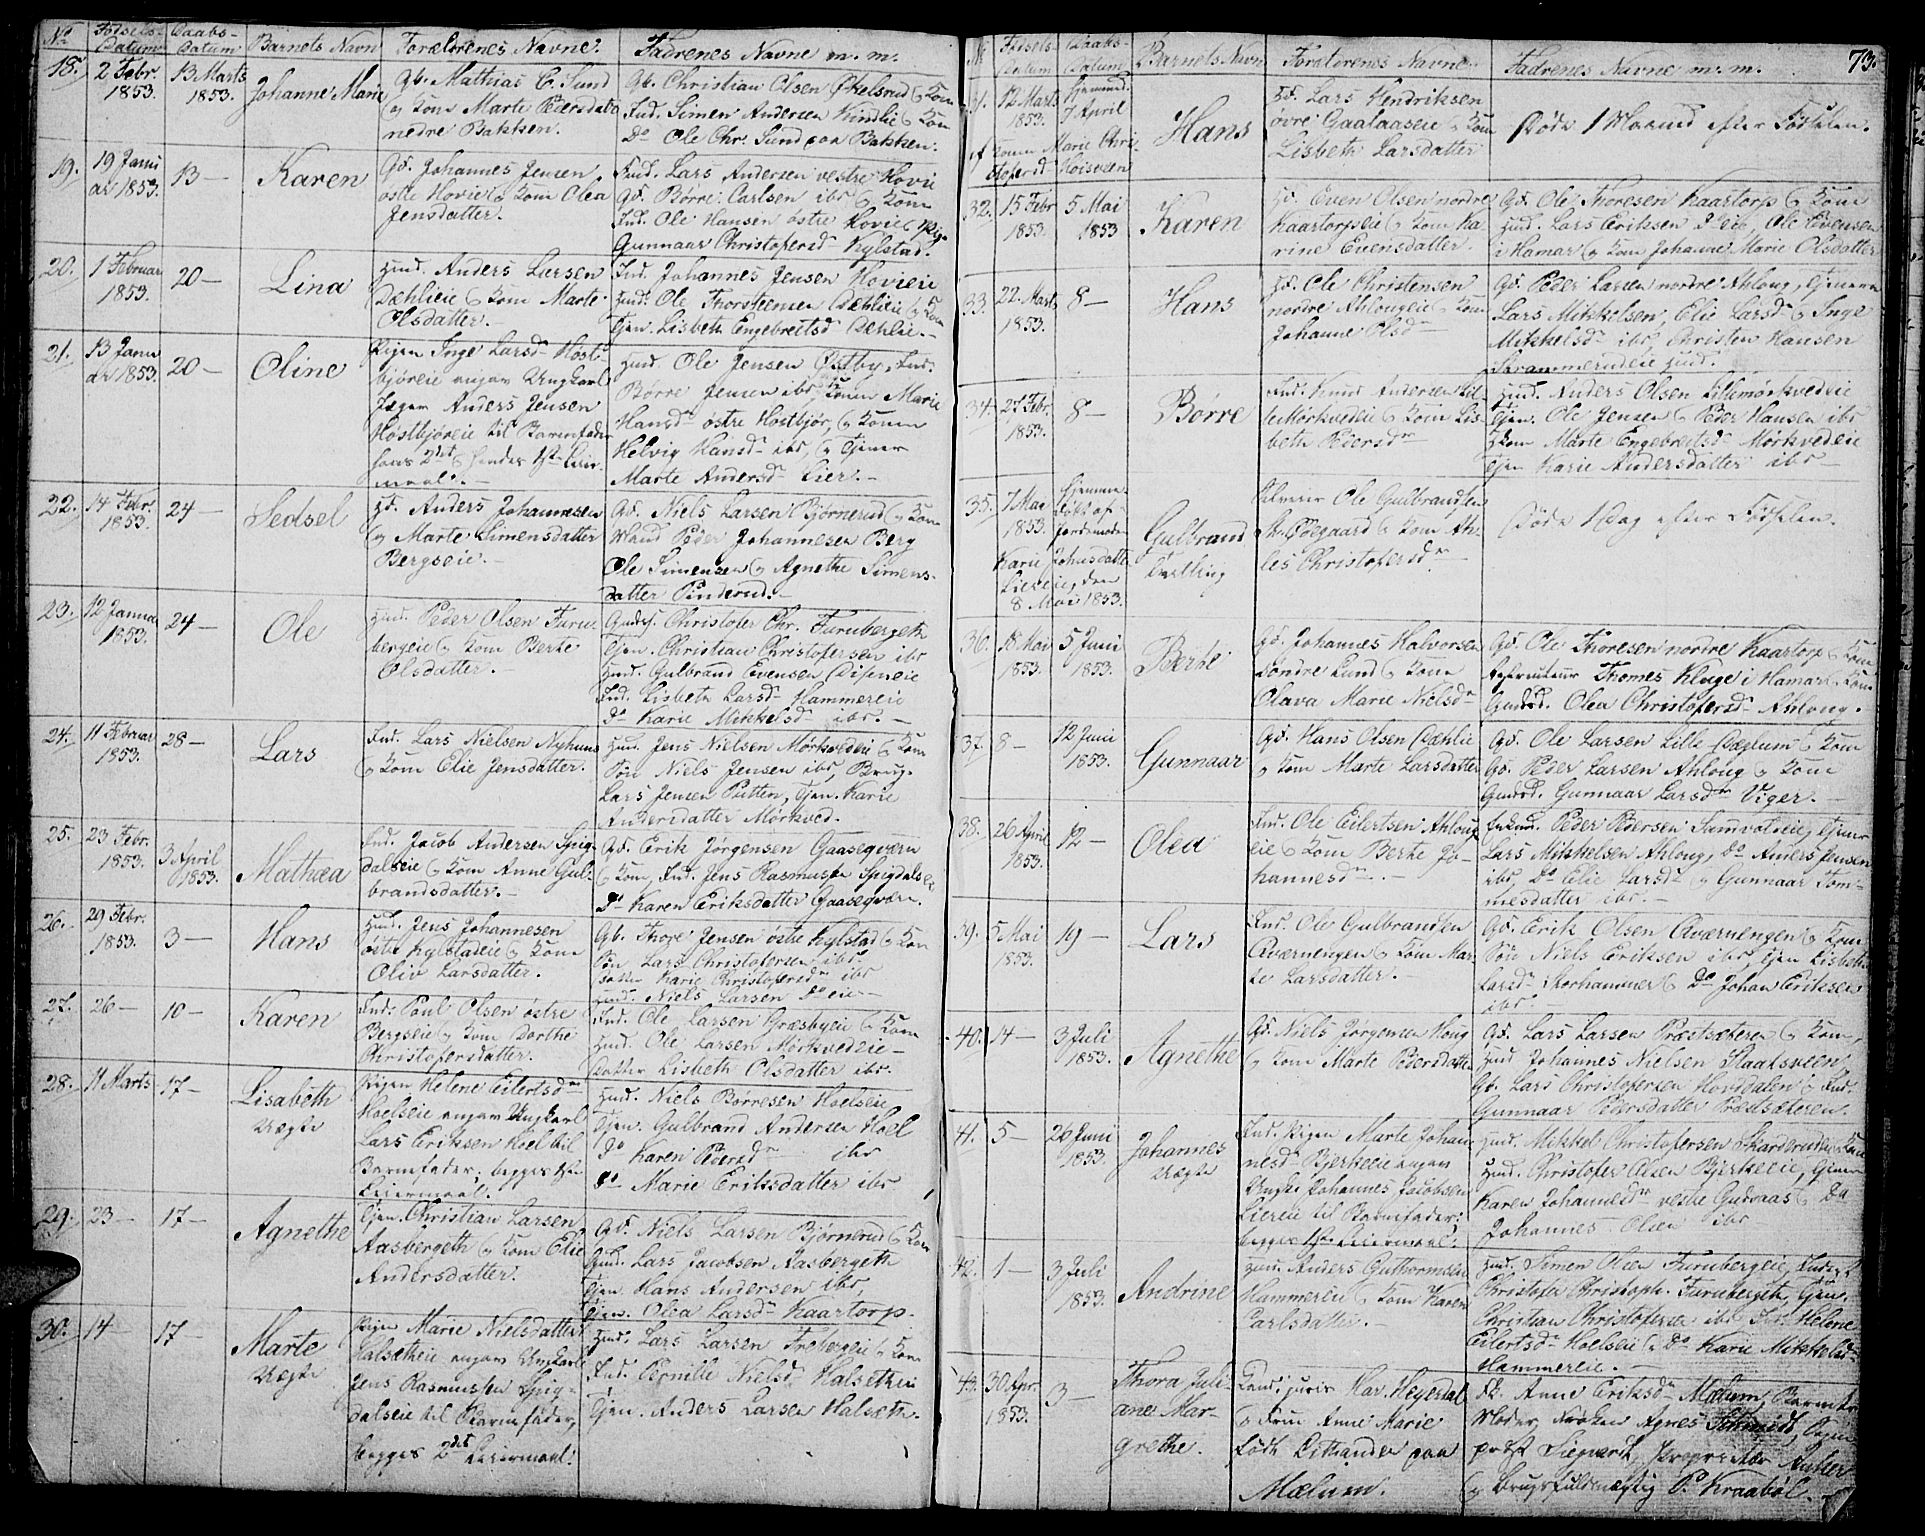 No. Fødsels-Datum Daabs-Datum Barnets Navn Forældrenes Navne. Fadrenes Navne m. m.
18. 2 Febr. 1853. 13 Marts 1853. Johanne Marie
Gb. Mathias C. Lund
og Kone Marte Pedersdatter
nedre Bakken.
Gb. Christian Olsen Økelsrud og Kone
Ind. Simen Andersen Kindlie og Kone
Do Ole Chr. Lund paa Bakken.
19. 19 Janu ar 1853. 13 — Karen
Gd. Johannes Jensen
østre Hovie og Kone Olea
Jensdatter.
Ind. Lars Andersen vestre Hovie
Gd. Børre Carlsen ibs og Kone
Ind. Ole Hansen østre Hovie og Pige
Gunnaar Christofersd. Kylstad.
20. 1 Februar 1853. 20 — Lina
Huusd. Anders Larsen
Dæhlieie og Kone Marte
Olsdatter. —
Ind. Johannes Jensen Hovieie
Huusd. Ole Thorstensen Dæhlieie og Kone
Tjen. Lisbeth Engebretsd. Dæhlie. —
21. 13 Janu ar 1853. 20 — Oline
Pigen Inge Larsd. Høst-
bjøreie angav Ungkarl
Jæger Anders Jensen
Høstbjøreie til Barnefader
hans 2det og hendes 1ste Leier-
maal. —
Huusd. Ole Jensen Østby, Ind.
Børre Jensen ibs, Konen Marie
Hansd. østre Høstbjør, og Konen
Helvig Hansd. ibs, og Tjener
Marte Andersd. Lier. —
22. 14 Febr. 1853. 24 — Sedsel
Hd. Anders Johannesen
og Marte Simensdatter
Bergseie. —
Gd. Niels Larsen Bjørnerud og Kone
Mand Peder Johannesen Berg
Ole Simensen og Agnethe Simens-
datter Pinderud. —
23. 12 Januar 1853. 24 — Ole
Huusd. Peder Olsen Furu-
bergeie og Kone Berte
Olsdatter. —
Gaards. Christofer Chr. Furubergeth
Tjen. Christian Christofersen ibs
Huusd. Gulbrand Evensen Diseneie
Ind. Lisbeth Larsd. Hammereie
Do Karie Mikkelsd. ibs. —
24. 11 Februar 1853. 28 — Lars
Ind. Lars Nielsen Nyhuus
og Kone Elie Jensdatter.
Huusd. Jens Nielsen Mørkvedeie og Kone
Søn Niels Jensen ibs, Brug.
Lars Jensen Putten, Tjen. Karie
Andersdatter Mørkved.
25. 23 Febr. 1853. 3 April 1853. Mathea
Ind. Jacob Andersen Spig-
dalseie og Kone Anne Gul-
brandsdatter. —
Gd. Erik Jørgensen Gaasegværn
og Kone, Ind. Jens Rasmussen Spigdalseie
Do Karen Eriksdatter Gaasegværn.
26. 29 Febr. 1853. 3 — Hans
Huusd. Jens Johannesen
østre Kylstadeie og Kone
Oliv Larsdatter.
Gb. Thore Jensen østre Kylstad og Kone
Søn Lars Christofersen ibs
Datter Karie Christofersdr ibs
Huusd. Niels Larsen Do eie —
27. 26 — 10 — Karen
Ind. Poul Olsen østre
Bergseie og Kone Dorthe
Christofersdatter.
Ind. Ole Larsen Græsbyeie og Kone
Huusd. Ole Larsen Mørkvedeie —
Datter Lisbeth Olsdatter ibs.
28. 11 Marts 17 — Lisabeth Uægte
Pigen Helene Eilertsdr
Hoelseie angav Ungkarl
Lars Eriksen Hoel til
Barnefader; begges 1ste
Leiermaal.
Huusd. Niels Børresen Hoelseie
Tjen. Gulbrand Andersen Hoel
Do Karen Pedersdr ibs
Do Marie Eriksdatter ibs
29. 23 — 17 — Agnethe
Tjen. Christian Larsen
Aasbergeth og Kone Elie
Andersdatter.
Gd. Niels Larsen Bjørnerud og Kone
Gaardsd. Lars Jacobsen Aasbergeth
Tjen. Hans Andersen ibs,
Tjen. Olea Larsd. Kaartorp.
30. 14 — 17 — Marte Uægte
Pigen Marie Nielsdatter
Halsætheie angav Ungkarl
Jens Rasmussen Spig-
dalseie til Barnefader,
begges 2det Leiermaal.
Huusd. Lars Larsen Frebergeie og Kone
Ind. Pernille Nielsd. Halsetheie
Tjen. Anders Larsen Halsæth. —
73.
N. Fødsels-Datum Daabs-Datum Barnets Navn Forældrenes Navne. Fadrenes Navne m. m.
31. 12 Marts 1853. Hjemmed. 7 April
af Konen Marie Chri-
stofersd. Høisveen
Hans
Hd. Lars Hendriksen
øvre Gaalaaseie og Kone
Lisbeth Larsdatter
Døde 1 Maaned efter Fødselen.
32. 15 Febr 1853. 5 Mai 1853 Karen
Hd. Even Olsen nordre
Kaartorpseie og Kone Ka-
rine Evensdatter.
Gd. Ole Thoresen Kaartorp og Kone
Huusd. Lars Eriksen Do eie, Ole Evensen
i Hamar og Kone Johanne Marie Olsdatter
33. 22 Marts 1853. 8 — Hans
Hd. Ole Christensen
nordre Ahlougeie og Kone
Johanne Olsdr
Gd. Peder Larsen nordre Ahloug, Tjenere
Lars Mikkelsen, Elie Larsd. og Inge
Mikkelsd. ibs, Christen Hansen
Skrammerudeie Huusd.
34. 27 Febr. 1853. 8 — Børre
Ind. Knud Andersen Lil-
lemørkvedeie og Kone Lis-
beth Pedersdr
Huusd. Anders Olsen Lillemørkvedeie
Tjen. Ole Jensen og Peder Hansen ibs
Hkone Marte Engebretsd. Mørkvedeie
Tjen. Karie Andersdatter ibs —
35. 7 Mai 1853. Hjemme-døbt af Jordemoder
Karie Johnsdatter
Liereie, den
8 Mai 1853.
Gulbrand Tvilling
Selveier Ole Gulbrandsen
St. Ødegaard og Kone Ah-
les Christofersdr
Døde 1 Dag efter Fødselen.
36. 18 Mai 1853. 5 Juni 1853. Berte
Gd. Johannes Halvorsen
søndre Lund og Kone
Olava Marie Nielsdr
Gd. Ole Thoresen nordre Kaartorp og Kone
Thomes Kluge i Hamar og Kone
Gaardsd. Olea Christofersd. Ahloug.
37. 8 — 12 Juni 1853. Gunnaar
Gd. Hans Olsen Dæhlie
og Kone Marte Larsdatter
Gd. Ole Larsen Lille Dæhlum og Kone
Gd. Peder Larsen Ahloug og Kone
Gaardsd. Gunnaar Larsdr Viger. —
38. 26 April 1853. 12 — Olea
Ind. Ole Eilertsen Ahloug-
eie og Kone Berte Jo-
hannesdr. —
Peder Pedersen Sandvolseie, Tjener
Lars Mikkelsen Ahloug, Do Anders Jensen
ibs, Do Elie Larsdr og Gunnaar Tom-
mesdatter ibs. —
39. 5 Mai 1853. 19 — Lars
Ind. Ole Gulbrandsen
Qværnengen og Kone Mar-
te Larsdatter.
Gd. Erik Olsen Qværnengen og Kone
Søn Niels Eriksen ibs, Tjen. Lisbeth
Larsd. Storhammer og Do Johan Eriksen
ibs —
40. 14 — 3 Juli 1853. Agnethe
Gd. Niels Jørgensen Houg
og Kone Marte Pedersdatter
Gd. Lars Larsen Præstsæteren og Kone,
Huusd. Johannes Nielsen Staatsveen
Gd. Lars Christofersen Hovsdalen og Ind.
Gunnaar Pedersdatter Præstsæteren.
41. 5 — 26 Juni 1853. Johannes Uægte
Ind. Pigen Marte Johan-
nesd. Bjerkeeie angav
Ungk. Johannes Jacobsen
Liereie til Barnefader;
begges 1ste Leiermaal.
Huusd. Mikkel Christofersen Skarderudeie og Kone
Huusd. Christofer Olsen Bjerkeeie, Tjener
Karen Johannesdr vestre Gudsaas og Do
Johannes Olsen ibs
42. 1 — 3 Juli 1853. Andrine
Huusd. Anders Guthormsen
Hammereie og Kone Karen
Carlsdatter. —
Huusd. Simen Olsen Furubergeie, Inderst
Christofer Christoph. Furubergeth, Tjen.
Christian Christofersen ibs, Helene
Eilertsdr Hoelseie og Do Karie Mikkelsd.
Hammereie. —
43. 30 Apr. 1853. 3 — Thora Juli-
ane Mar-
grethe.
Cand. juris Har. Heyerdal
og Frue Anne Marie
født Dithander paa
Mælum.
Fr. Anne Eriksdr Mælum, Barnets
Moder, Frøken Agnes Schmidt, Ogsaa
prost Siegwardt, Proprietær Anker
og Brugsfuldmægtig P. Kraabøl.